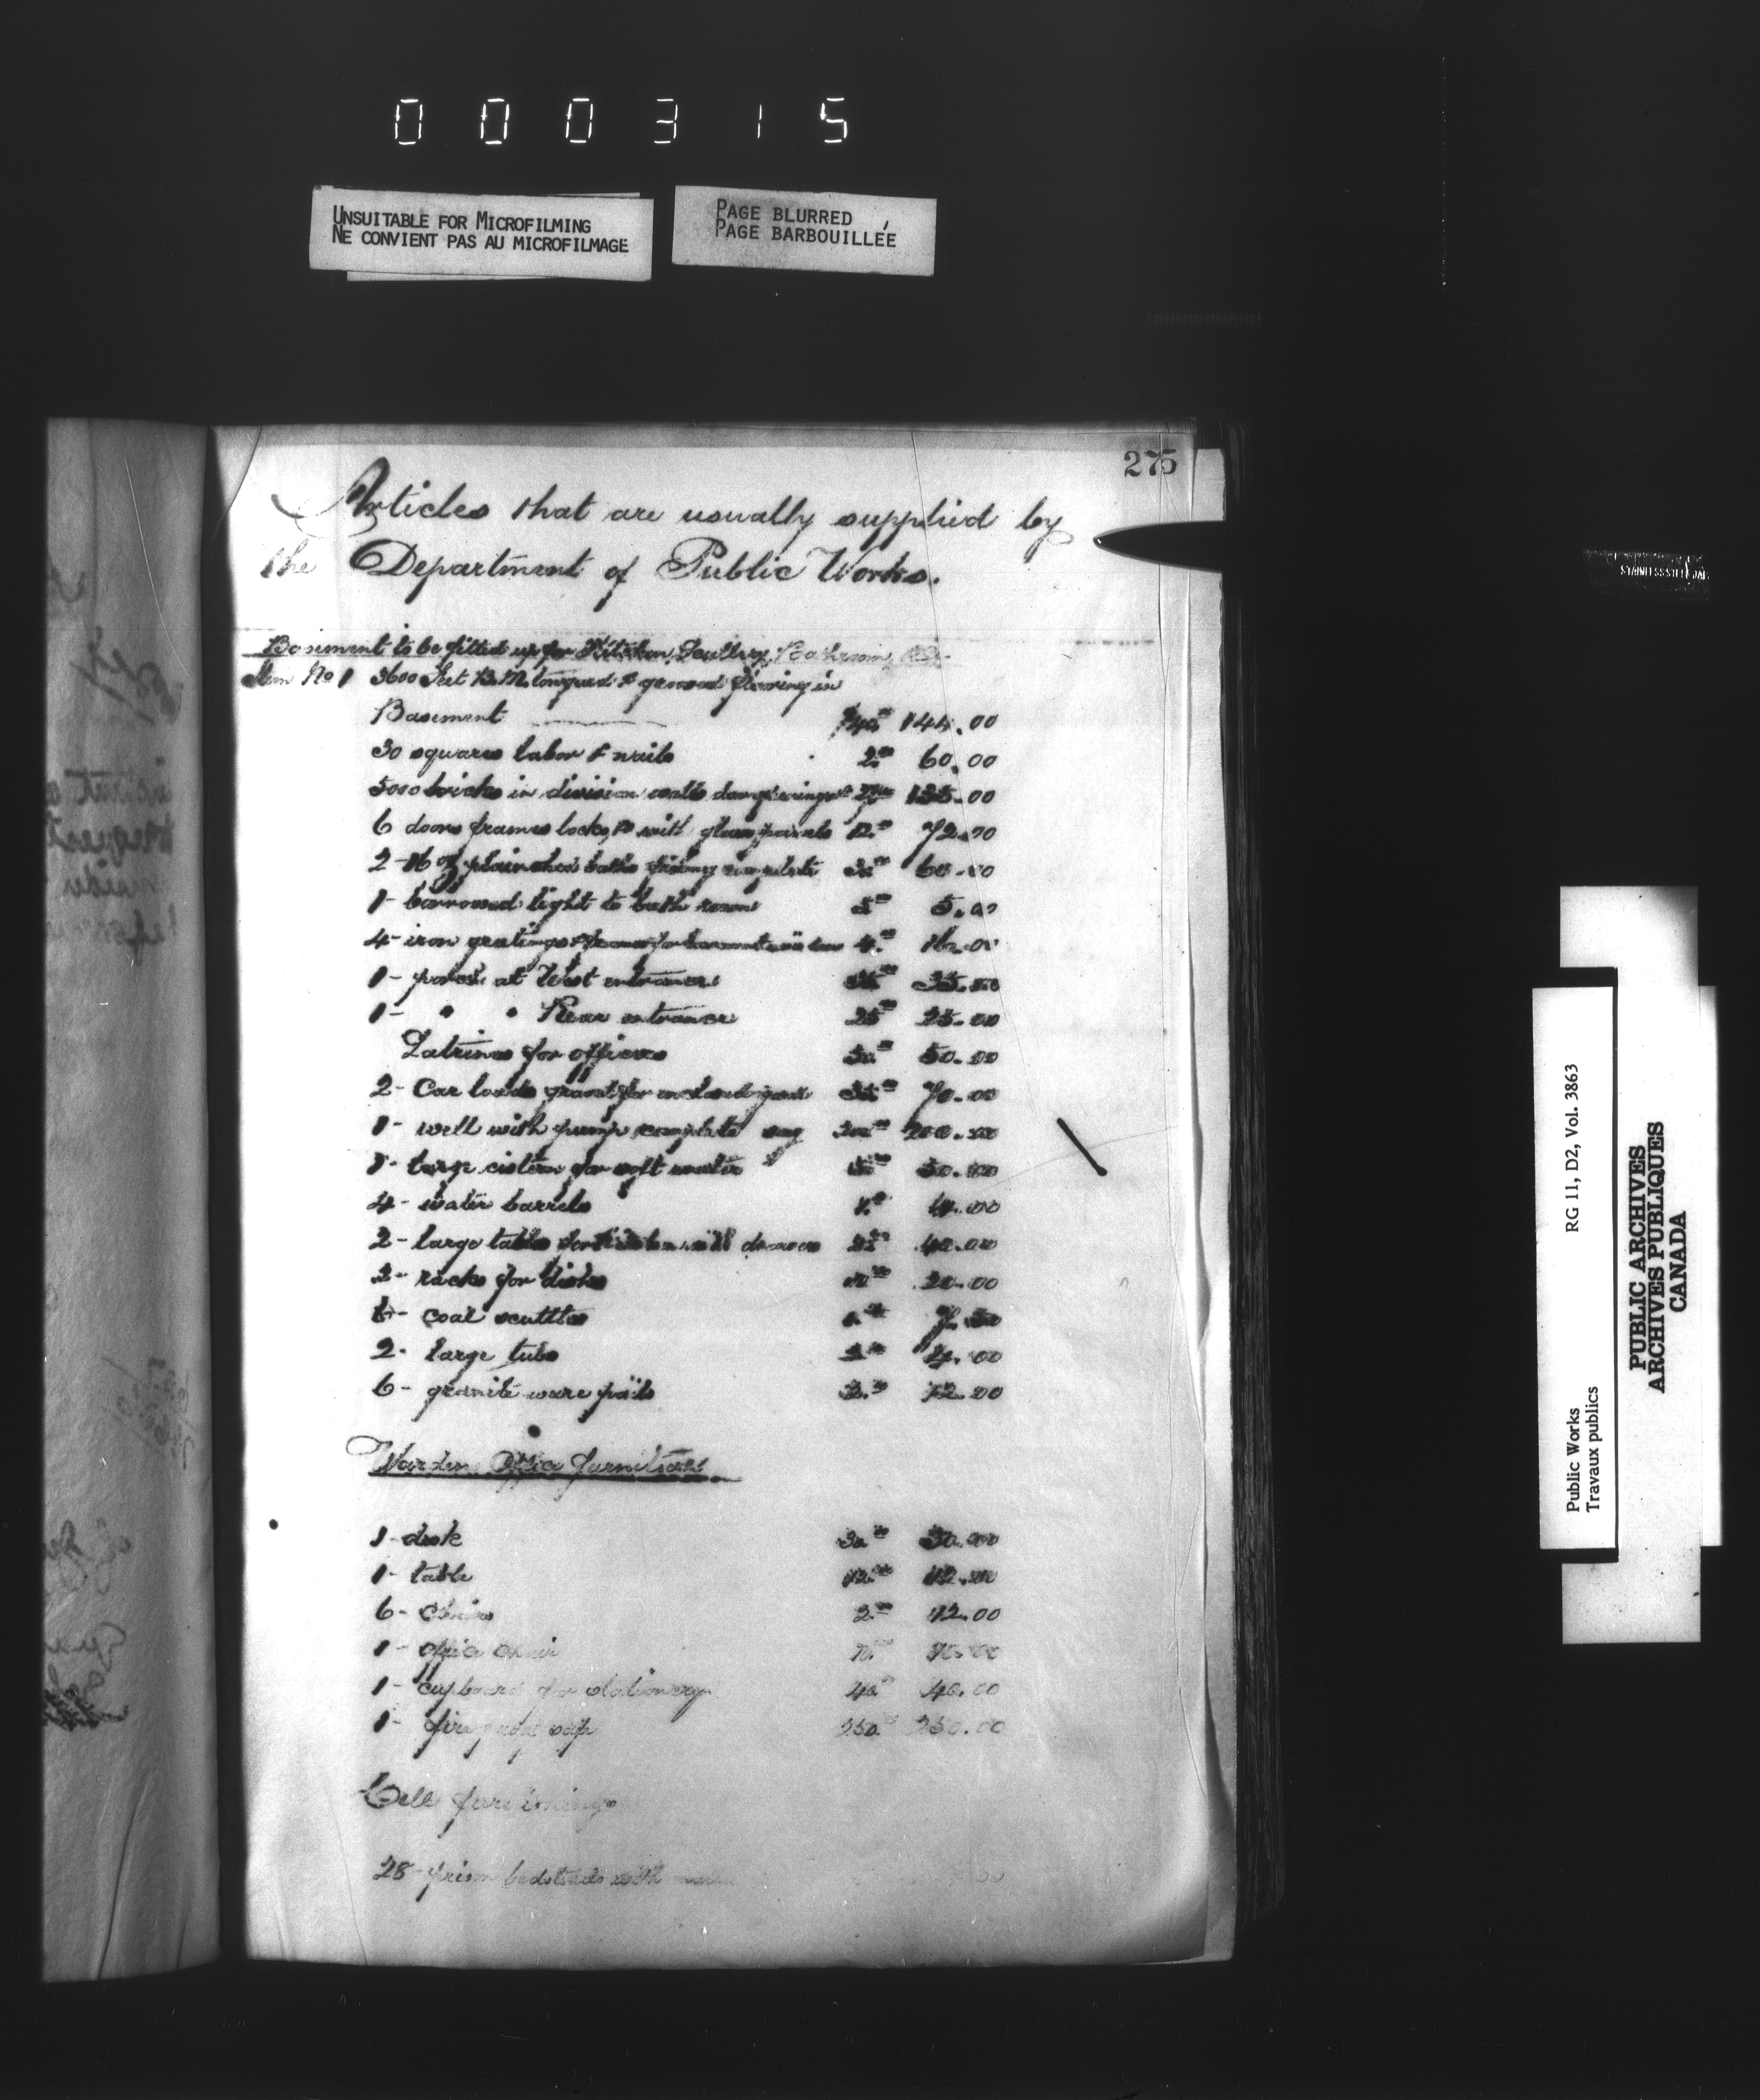 000315
UNSUITABLE FOR MICROFILMING
NE CONVIENT PAS AU MICROFILMAGE
PAGE BLURRED
PAGE BARBOUILLÉE
275
Articles that are usually supplied by
the Department of Public Works.
Basement to be fitted up for Kitchen, Scullery, Bathroom, &c.
Item No 1 3600 feet B.M. tongued & grooved flooring in
Basement $40.00 144.00
30 squares labor & nails 2.00 60.00
5000 bricks in division walls 135.00
6 doors frames locks, &c with glass panels 12.00 72.00
2 - 16 oz baths complete 30.00 60.00
1 - borrowed light to bath room 5.00 5.00
4 - iron gratings & frames for basement 4.00 16.00
1 - porch at West entrance 35.00 35.00
1 - " " Rear entrance 25.00 25.00
Latrines for officers 50.00 50.00
2 - Car loads for yard 35.00 70.00
1 - well with pump complete say 200.00 200.00
1 - large cistern for soft water 50.00 50.00
4 - water barrels 1.00 4.00
2 - large tables for kitchen with drawers 40.00
2 - racks for dishes 20.00
6 - coal scuttles 7.50
2 - large tubs 2.00 4.00
6 - granite ware pails 2.00 12.00
Wardens Office furniture
1 - desk 30.00 30.00
1 - table 12.00 12.00
6 - Chairs 2.00 12.00
1 - office chair
1 - cupboard for stationery 40.00 40.00
1 - fire proof safe 250.00 250.00
Cell furnishings
28 - prison bedsteads with
STAINLESS STEEL
Public Works RG 11, D2, Vol. 3863
Travaux publics
PUBLIC ARCHIVES
ARCHIVES PUBLIQUES
CANADA